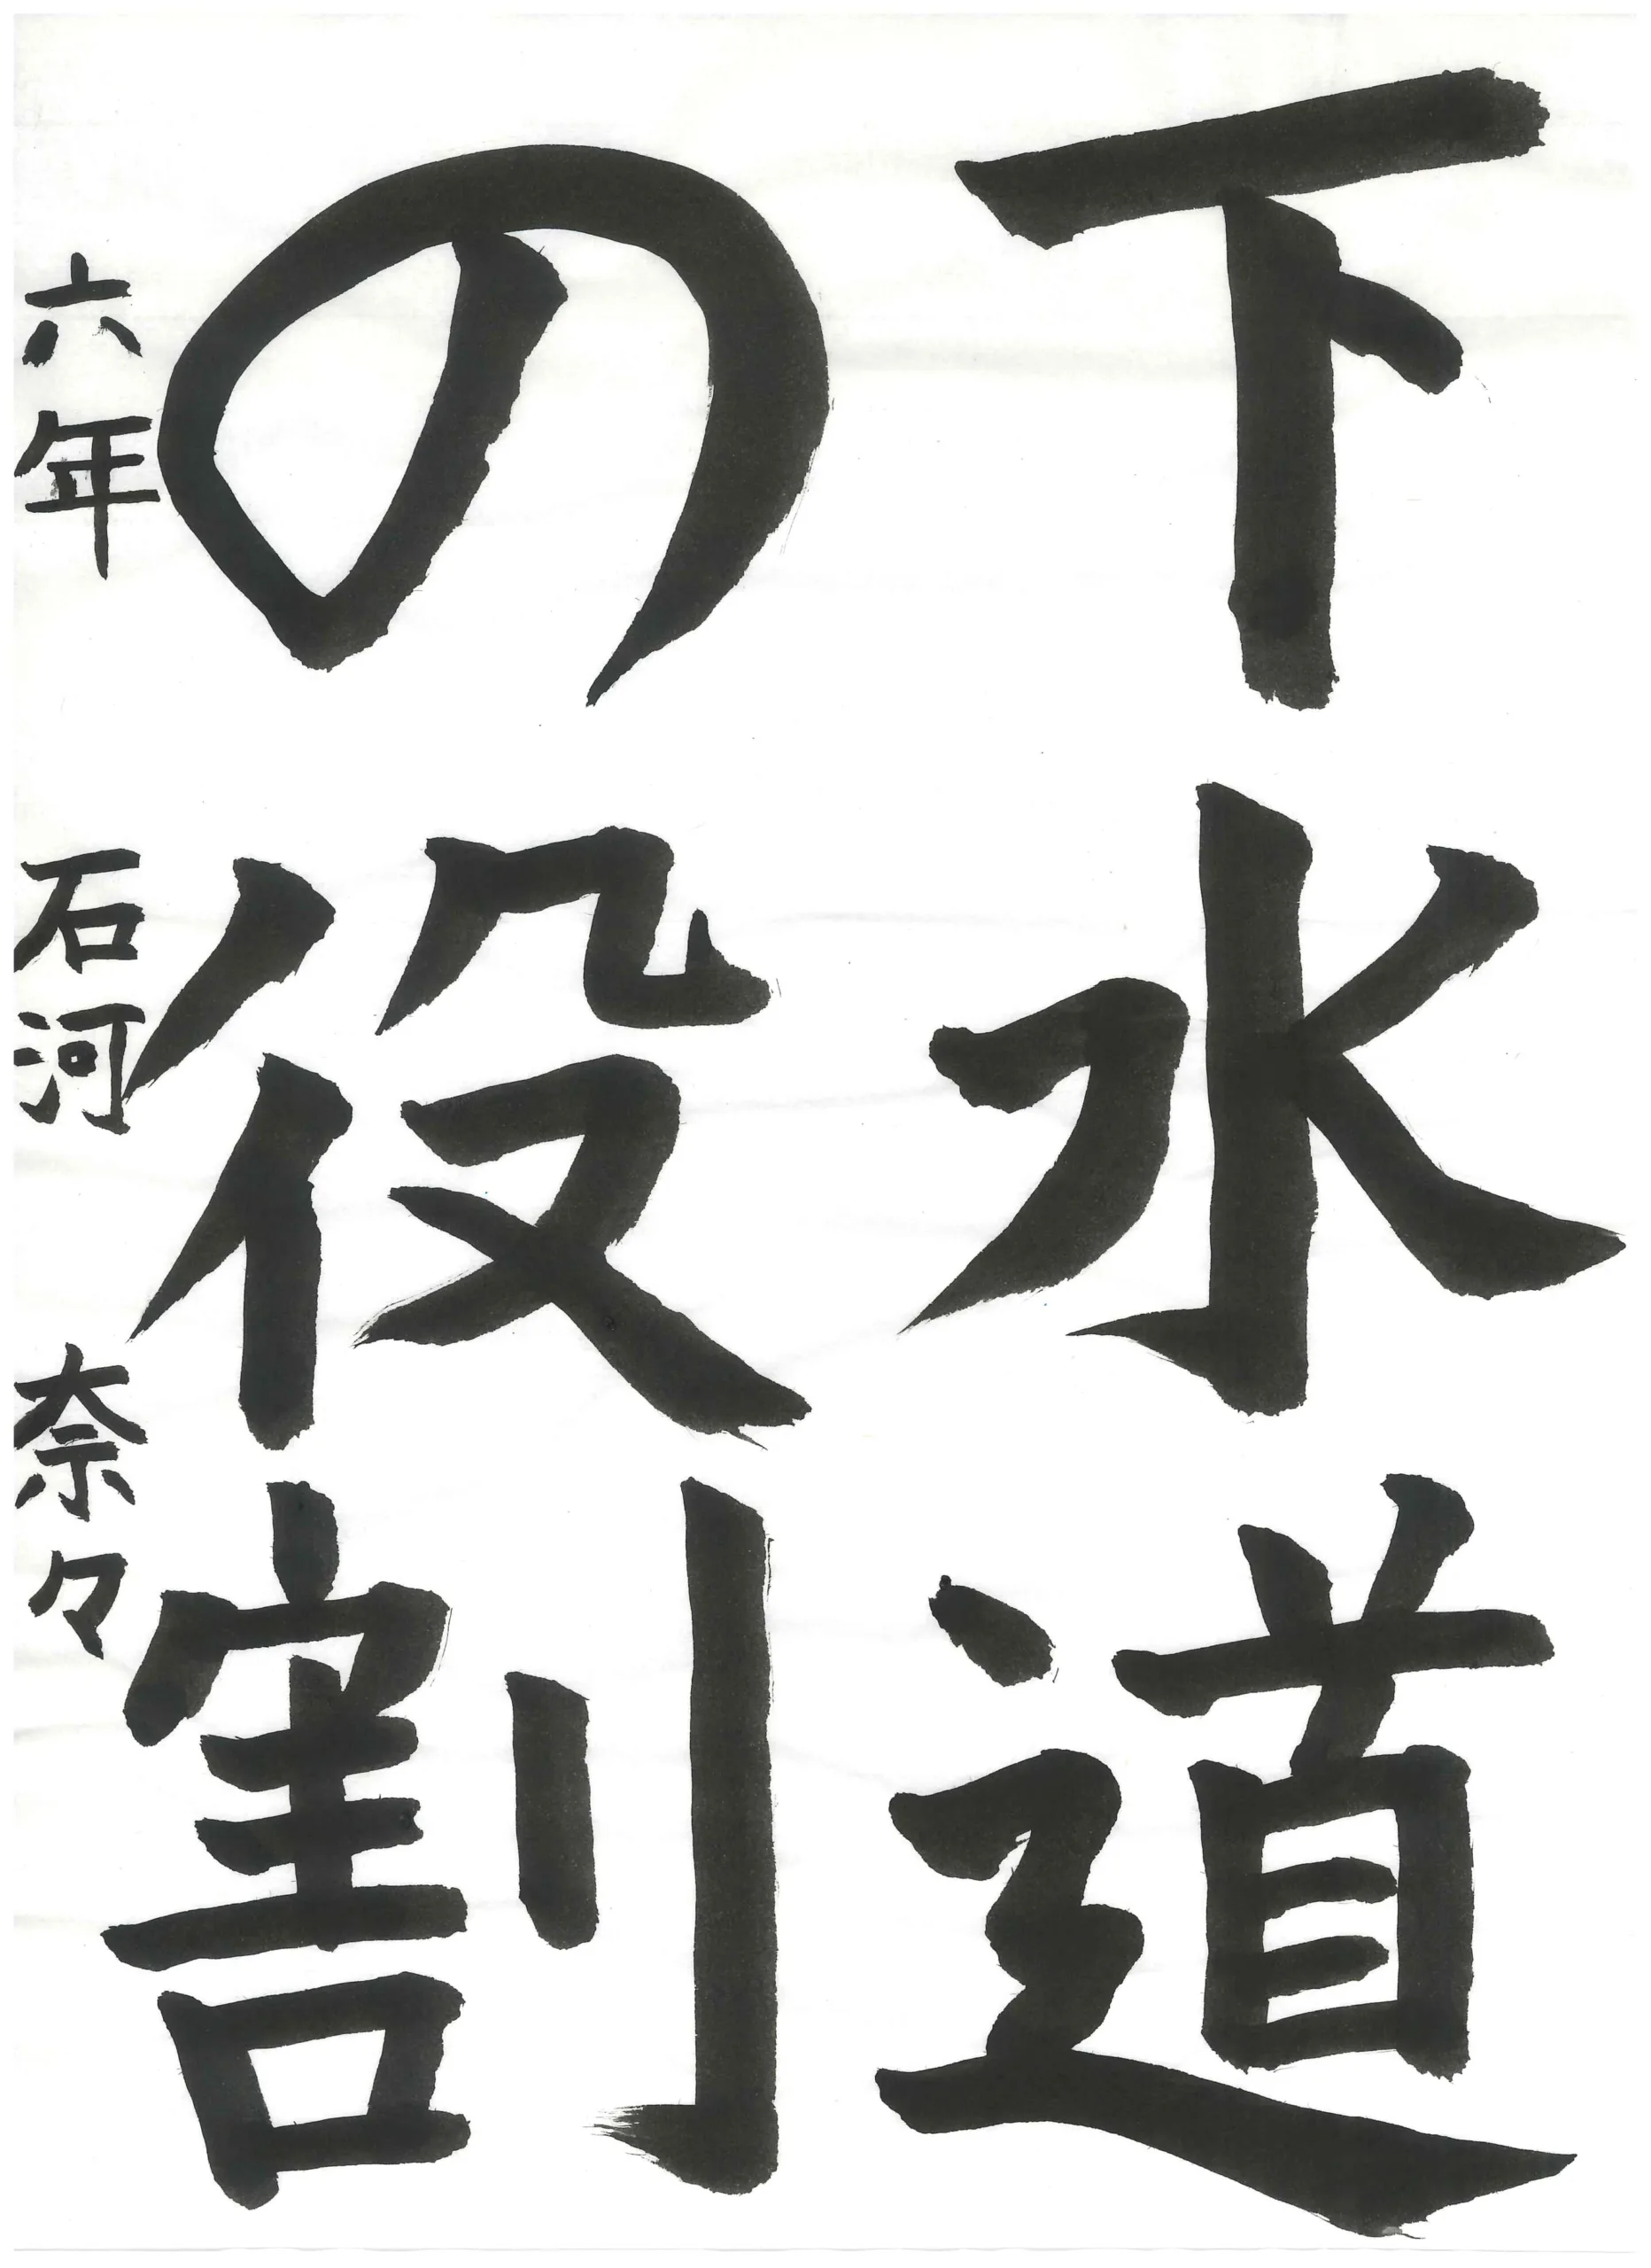 下水道
の役割
六年 石河 奈々